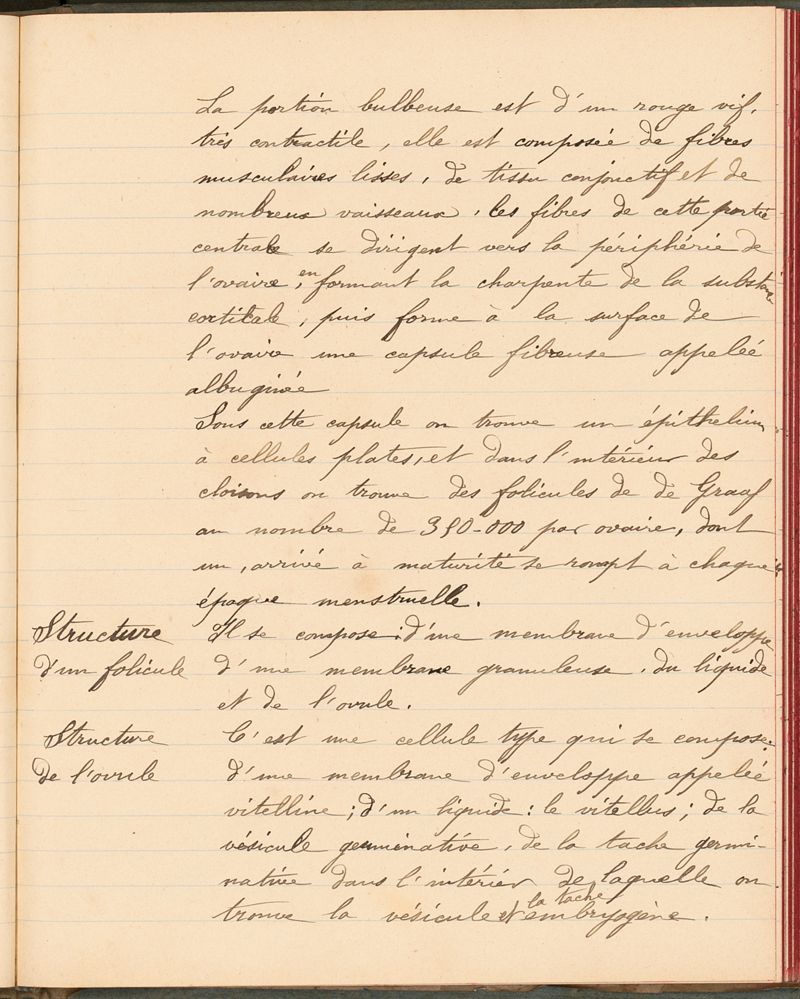 La portion bulbeuse est d'un rouge vif,
très contractile, elle est composée de fibres
musculaires lisses, de tissu conjonctif et de
nombreux vaisseaux, les fibres de cette partie
centrale se dirigent vers la périphérie de
l'ovaire, en formant la charpente de la substance
corticale, puis forme à la surface de
l'ovaire une capsule fibreuse appelée
albuginée
Sous cette capsule on trouve un épithelium
à cellules plates, et dans l'intérieur des
cloisons on trouve des folicules de de Graaf
au nombre de 350-000 par ovaire, dont
un, arrivé à maturité se rompt à chaque
époque menstruelle.
Structure Il se compose: d'une membrane d'enveloppe
d'un folicule d'une membrane granuleuse, du liquide
et de l'ovule.
Structure C'est une cellule type qui se compose:
de l'ovule d'une membrane d'enveloppe appelée
vitelline; d'un liquide: le vitellus; de la
vésicule germinative, de la tache germi-
native dans l'intérieur de laquelle on
trouve la vésicule et la tache embryogène.